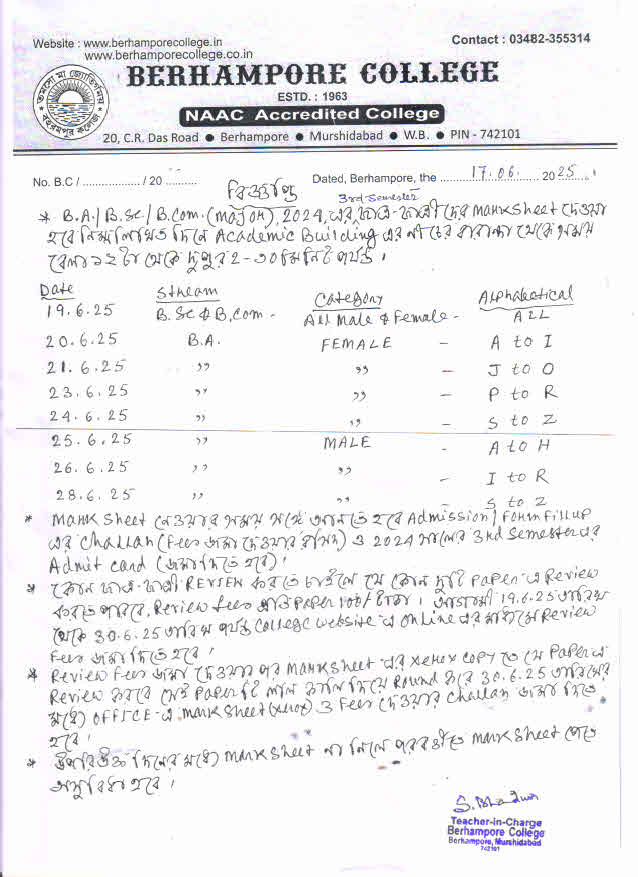 Website : www.berhamporecollege.in
www.berhamporecollege.co.in
Contact : 03482-355314
তমসো মা জ্যোতির্গময়
বহরমপুর কলেজ
BERHAMPORE COLLEGE
ESTD. : 1963
NAAC Accredited College
20, C.R. Das Road ● Berhampore ● Murshidabad ● W.B. ● PIN - 742101
No. B.C / .................. / 20 ..........
Dated, Berhampore, the 17.06. 2025
বিজ্ঞপ্তি
3rd Semester
* B.A/B.Sc/B.Com. (Major), 2024, এর ছাত্র-ছাত্রীদের Marksheet দেওয়া
হবে নিম্নলিখিত দিনে Academic Building এর নীচের বারান্দা থেকে সময়
বেলা ১২ টা থেকে দুপুর 2-৩০ মিনিট পর্যন্ত।
Date Stream Category Alphabetical
19.6.25 B.Sc & B.Com - All Male & Female - ALL
20.6.25 B.A. FEMALE - A to I
21.6.25 ,, ,, - J to O
23.6.25 ,, ,, - P to R
24.6.25 ,, ,, - S to Z
25.6.25 ,, MALE - A to H
26.6.25 ,, ,, - I to R
28.6.25 ,, ,, S to Z
* Mark Sheet নেওয়ার সময় সঙ্গে আনতে হবে Admission/Form Fill up
এর Challan (Fees জমা দেওয়ার রসিদ) ও 2024 সালের 3rd Semester এর
Admit Card (জমা দিতে হবে)।
* কোন ছাত্র-ছাত্রী REVIEW করতে চাইলে যে কোন দুটি Paper এ Review
করতে পারবে, Review fees প্রতি Paper 100/ টাকা। আগামী 19.6.25 তারিখ
থেকে 30.6.25 তারিখ পর্যন্ত College website এ online এর মাধ্যমে Review
Fees জমা দিতে হবে।
* Review Fees জমা দেওয়ার পর Marksheet এর xerox copy তে যে Paper এ
Review করবে সেই Paper টি লাল কালি দিয়ে Round করে 30.6.25 তারিখের
মধ্যে OFFICE-এ Mark Sheet (xerox) ও Fees দেওয়ার Challan জমা দিতে
হবে।
* উপরিউক্ত দিনের মধ্যে Mark Sheet না নিলে পরবর্তীতে Mark Sheet পেতে
অসুবিধা হবে।
Teacher-in-Charge
Berhampore College
Berhampore, Murshidabad
742101